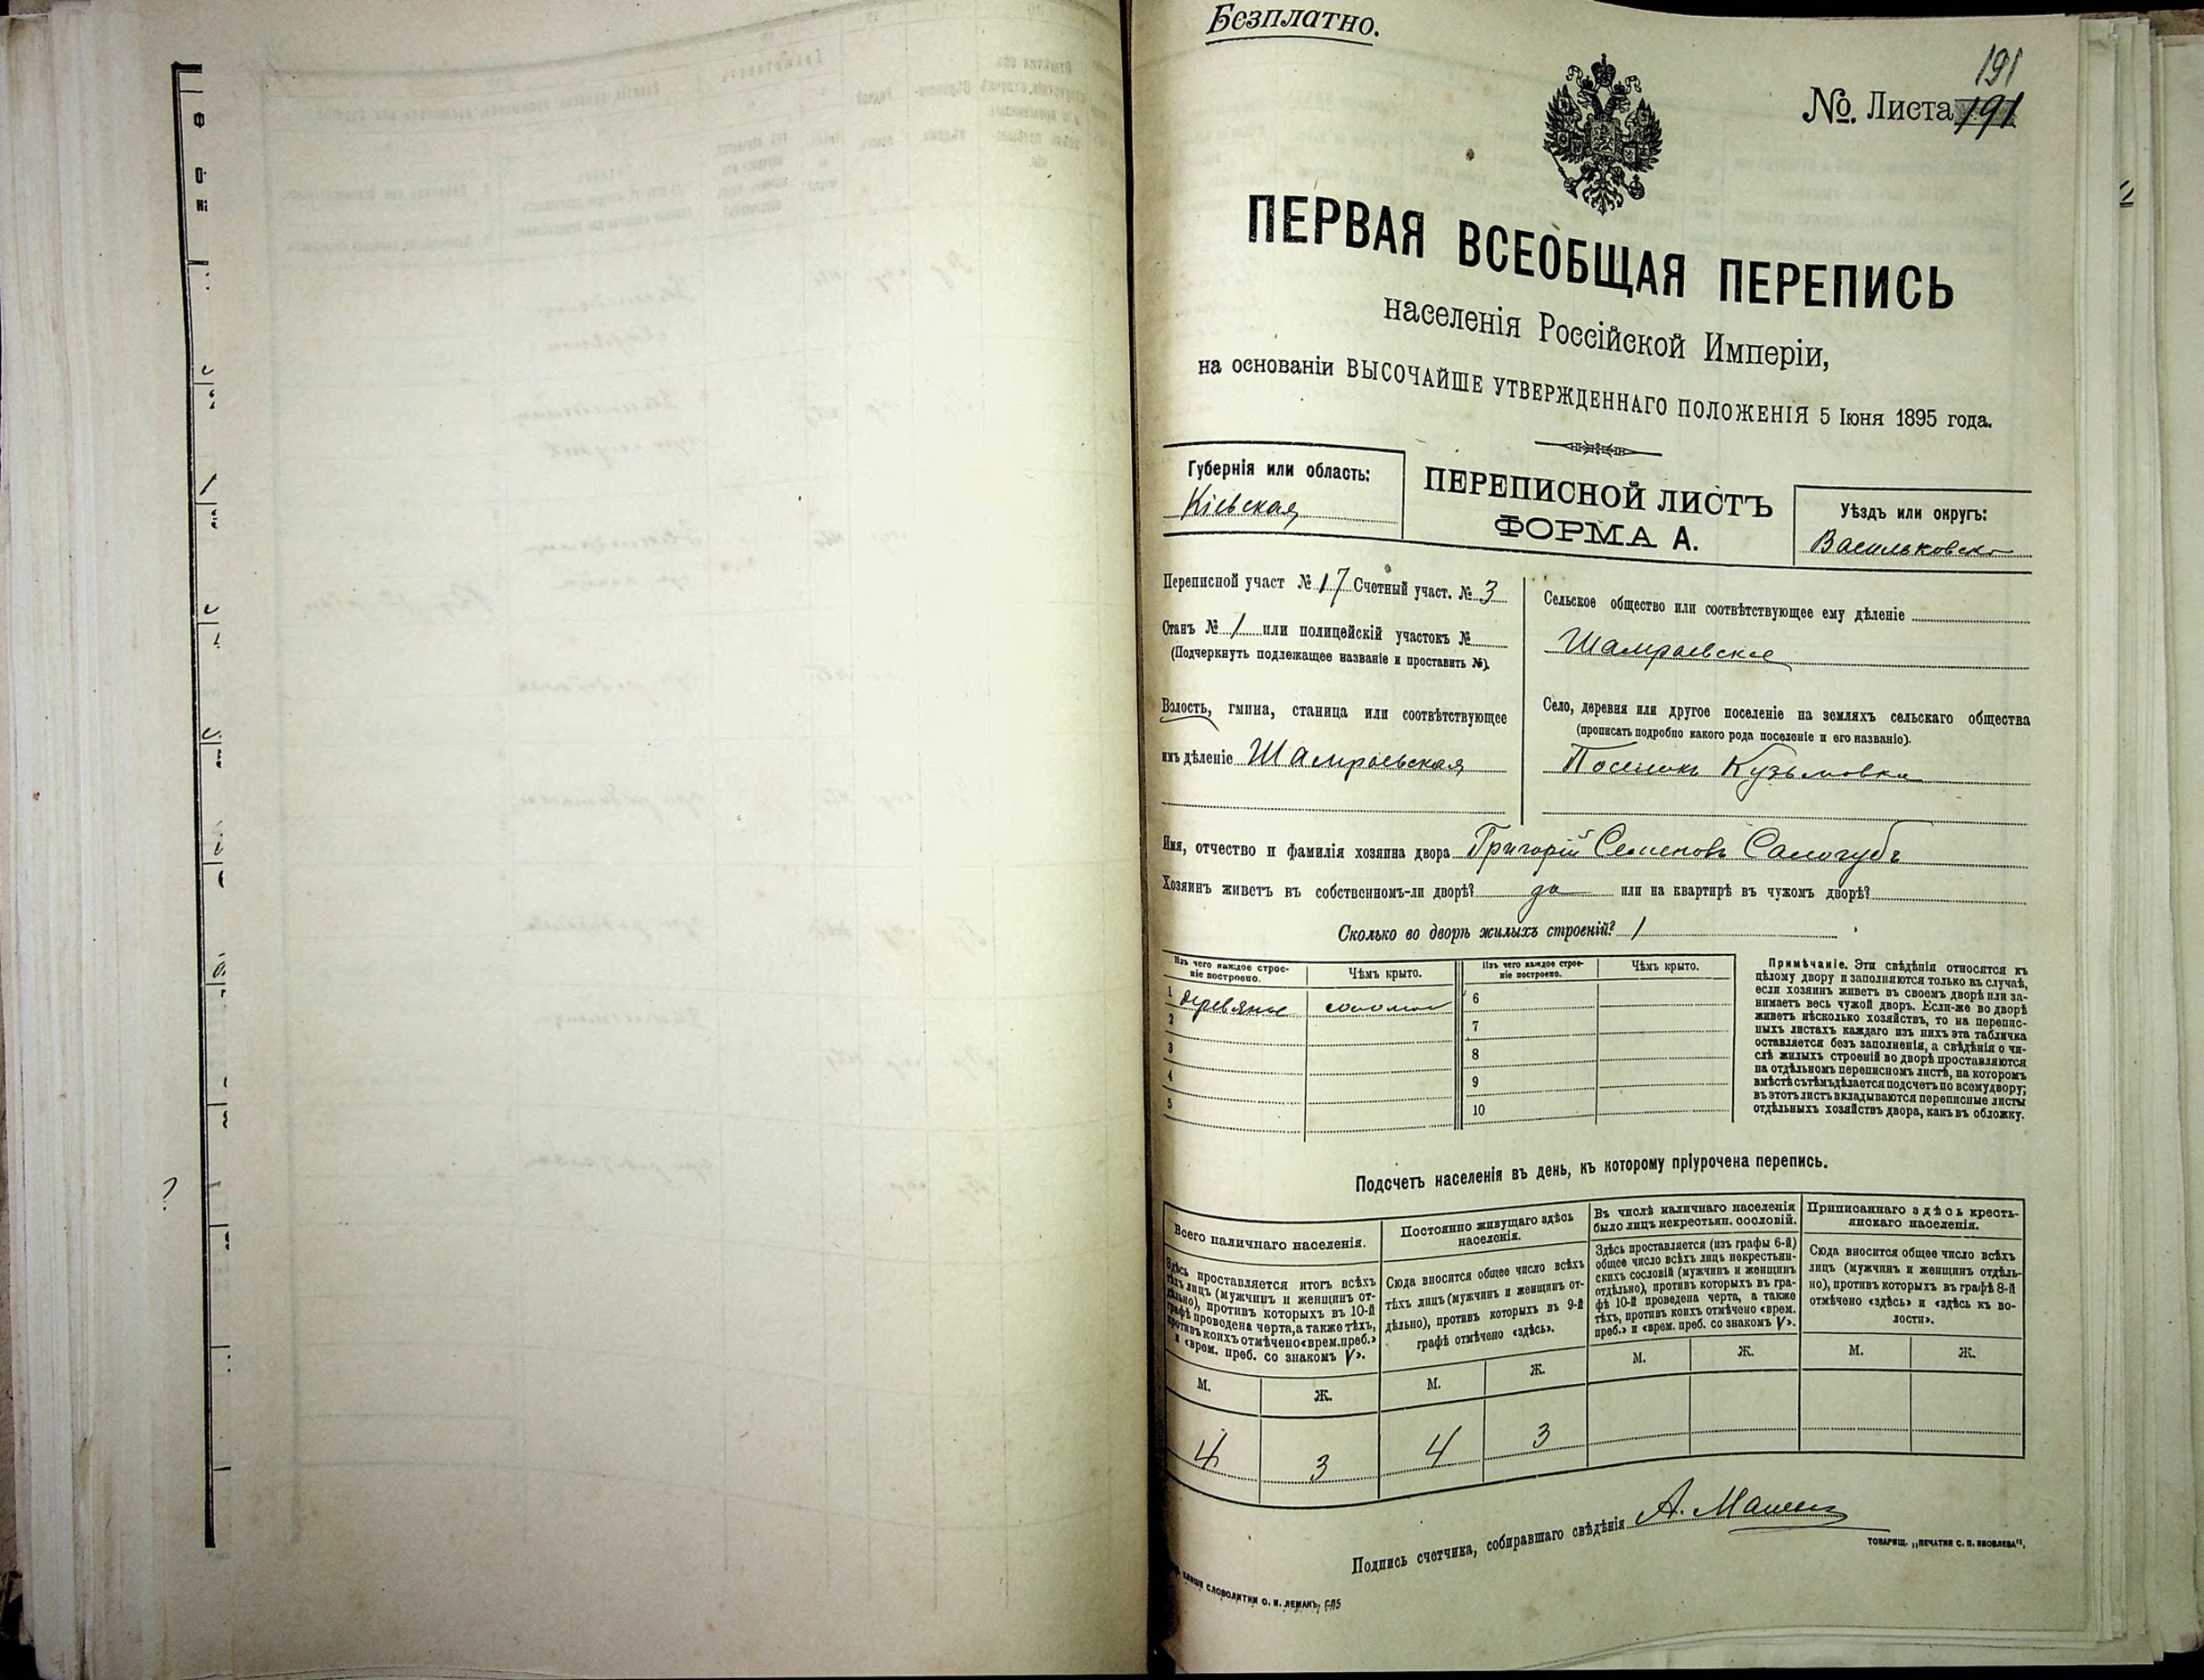 Безплатно.
191
№. Листа 191
ПЕРВАЯ ВСЕОБЩАЯ ПЕРЕПИСЬ
населенія Россійской Имперіи,
на основаніи ВЫСОЧАЙШЕ УТВЕРЖДЕННАГО ПОЛОЖЕНІЯ 5 Іюня 1895 года.
Губернія или область:
Кіевская
ПЕРЕПИСНОЙ ЛИСТЪ
ФОРМА А.
Уѣздъ или округъ:
Васильковско
Переписной участ № 17 Счетный участ. № 3
Станъ № 1 или полицейскій участокъ №
(Подчеркнуть подлежащее названіе и проставить №).
Волость, гмина, станица или соотвѣтствующее
имъ дѣленіе Шамраевская
Сельское общество или соотвѣтствующее ему дѣленіе
Шамраевское
Село, деревня или другое поселеніе на земляхъ сельскаго общества
(прописать подробно какого рода поселеніе и его названіе).
Поселокъ Кузьмовка
Имя, отчество и фамилія хозяина двора Григорій Семеновъ Самогубъ
Хозяинъ живетъ въ собственномъ-ли дворѣ? да или на квартирѣ въ чужомъ дворѣ?
Сколько во дворѣ жилыхъ строеній? 1
Изъ чего каждое строе-
ніе построено.
Чѣмъ крыто.
Изъ чего каждое строе-
ніе построено.
Чѣмъ крыто.
1 деревяное соломой 6
2 7
3 8
4 9
5 10
Примѣчаніе. Эти свѣдѣнія относятся къ
цѣлому двору и заполняются только въ случаѣ,
если хозяинъ живетъ въ своемъ дворѣ или за-
нимаетъ весь чужой дворъ. Если-же во дворѣ
живетъ нѣсколько хозяйствъ, то на перепис-
ныхъ листахъ каждаго изъ нихъ эта табличка
оставляется безъ заполненія, а свѣдѣнія о чи-
слѣ жилыхъ строеній во дворѣ проставляются
на отдѣльномъ переписномъ листѣ, на которомъ
вмѣстѣ съ тѣмъ дѣлается подсчетъ по всему двору;
въ этотъ листъ вкладываются переписные листы
отдѣльныхъ хозяйствъ двора, какъ въ обложку.
Подсчетъ населенія въ день, къ которому пріурочена перепись.
Всего наличнаго населенія.
Здѣсь проставляется итогъ всѣхъ
тѣхъ лицъ (мужчинъ и женщинъ от-
дѣльно), противъ которыхъ въ 10-й
графѣ проведена черта, а также тѣхъ,
противъ коихъ отмѣчено «врем. преб.»
и «врем. преб. со знакомъ V».
М. Ж.
4 3
Постоянно живущаго здѣсь
населенія.
Сюда вносится общее число всѣхъ
тѣхъ лицъ (мужчинъ и женщинъ от-
дѣльно), противъ которыхъ въ 9-й
графѣ отмѣчено «здѣсь».
М. Ж.
4 3
Въ числѣ наличнаго населенія
было лицъ некрестьян. сословій.
Здѣсь проставляется (изъ графы 6-й)
общее число всѣхъ лицъ некрестьян-
скихъ сословій (мужчинъ и женщинъ
отдѣльно), противъ которыхъ въ гра-
фѣ 10-й проведена черта, а также
тѣхъ, противъ коихъ отмѣчено «врем.
преб.» и «врем. преб. со знакомъ V».
М. Ж.
Приписаннаго здѣсь кресть-
янскаго населенія.
Сюда вносится общее число всѣхъ
лицъ (мужчинъ и женщинъ отдѣль-
но), противъ которыхъ въ графѣ 8-й
отмѣчено «здѣсь» и «здѣсь къ во-
лости».
М. Ж.
Подпись счетчика, собиравшаго свѣдѣнія А.
ТОВАРИЩ. „ПЕЧАТНЯ С. П. ЯКОВЛЕВА“,
СЛОВОЛИТНИ О. И. ЛЕМАНЪ, СПБ